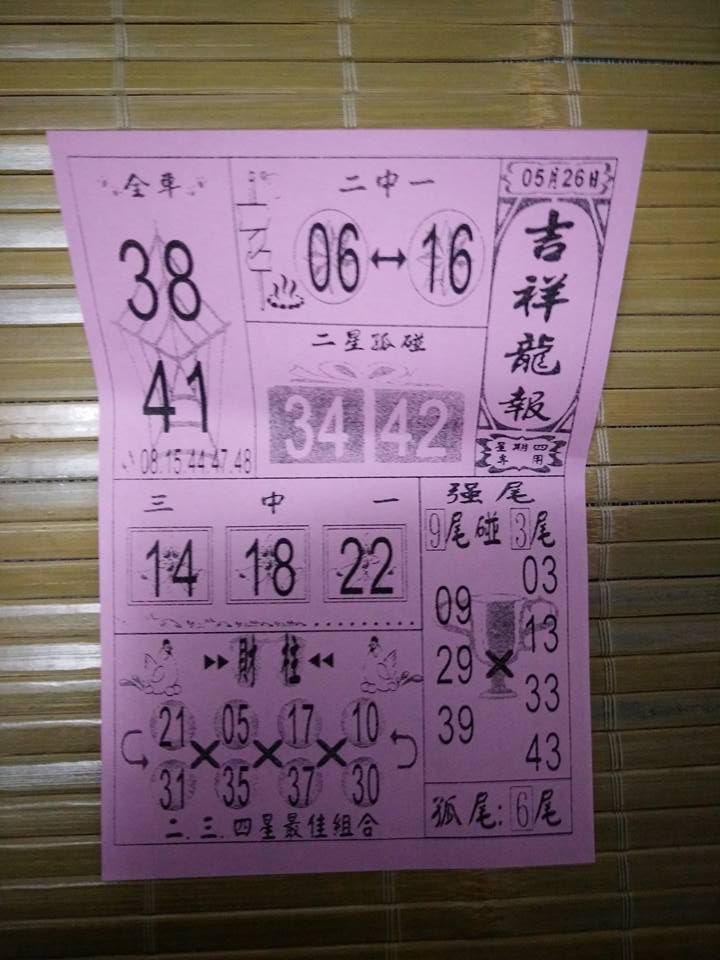 05月26日
吉祥龍報
星期四
車用
全車
38
41
08.15.44.47.48
二中一
06↔16
二星孤碰
34 42
三中一
14 18 22
强尾
9尾碰3尾
09 03
29 × 13
39 33
43
孤尾:6尾
▸▸財柱◂◂
21 05 17 10
× × ×
31 35 37 30
二.三.四星最佳組合